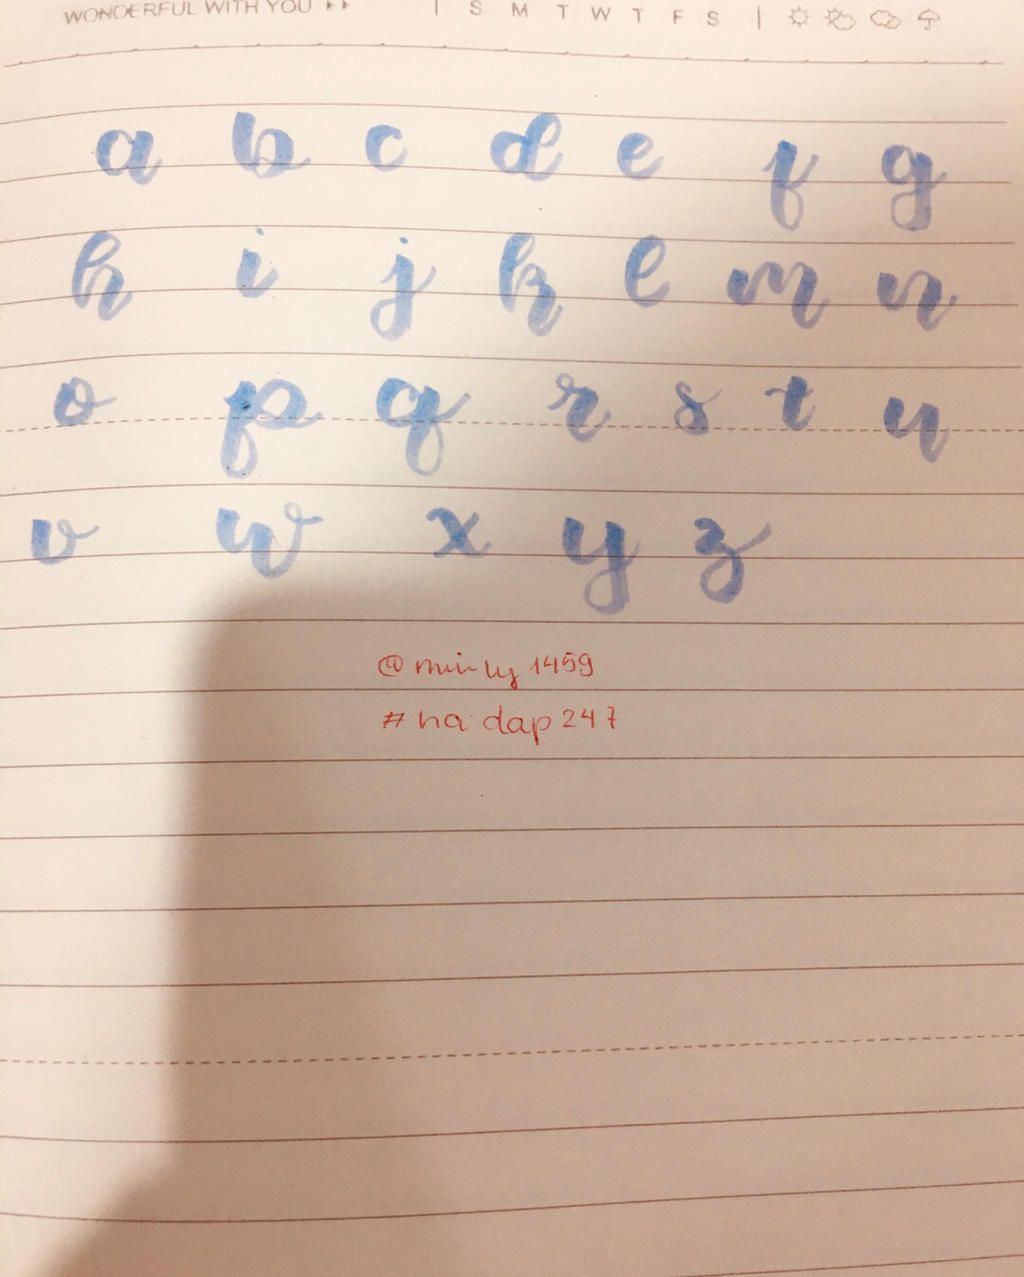 WONDERFUL WITH YOU | S M T W T F S |
a b c d e f g
h i j k l m n
o p q r s t u
v w x y z
1459
# ha dap 247